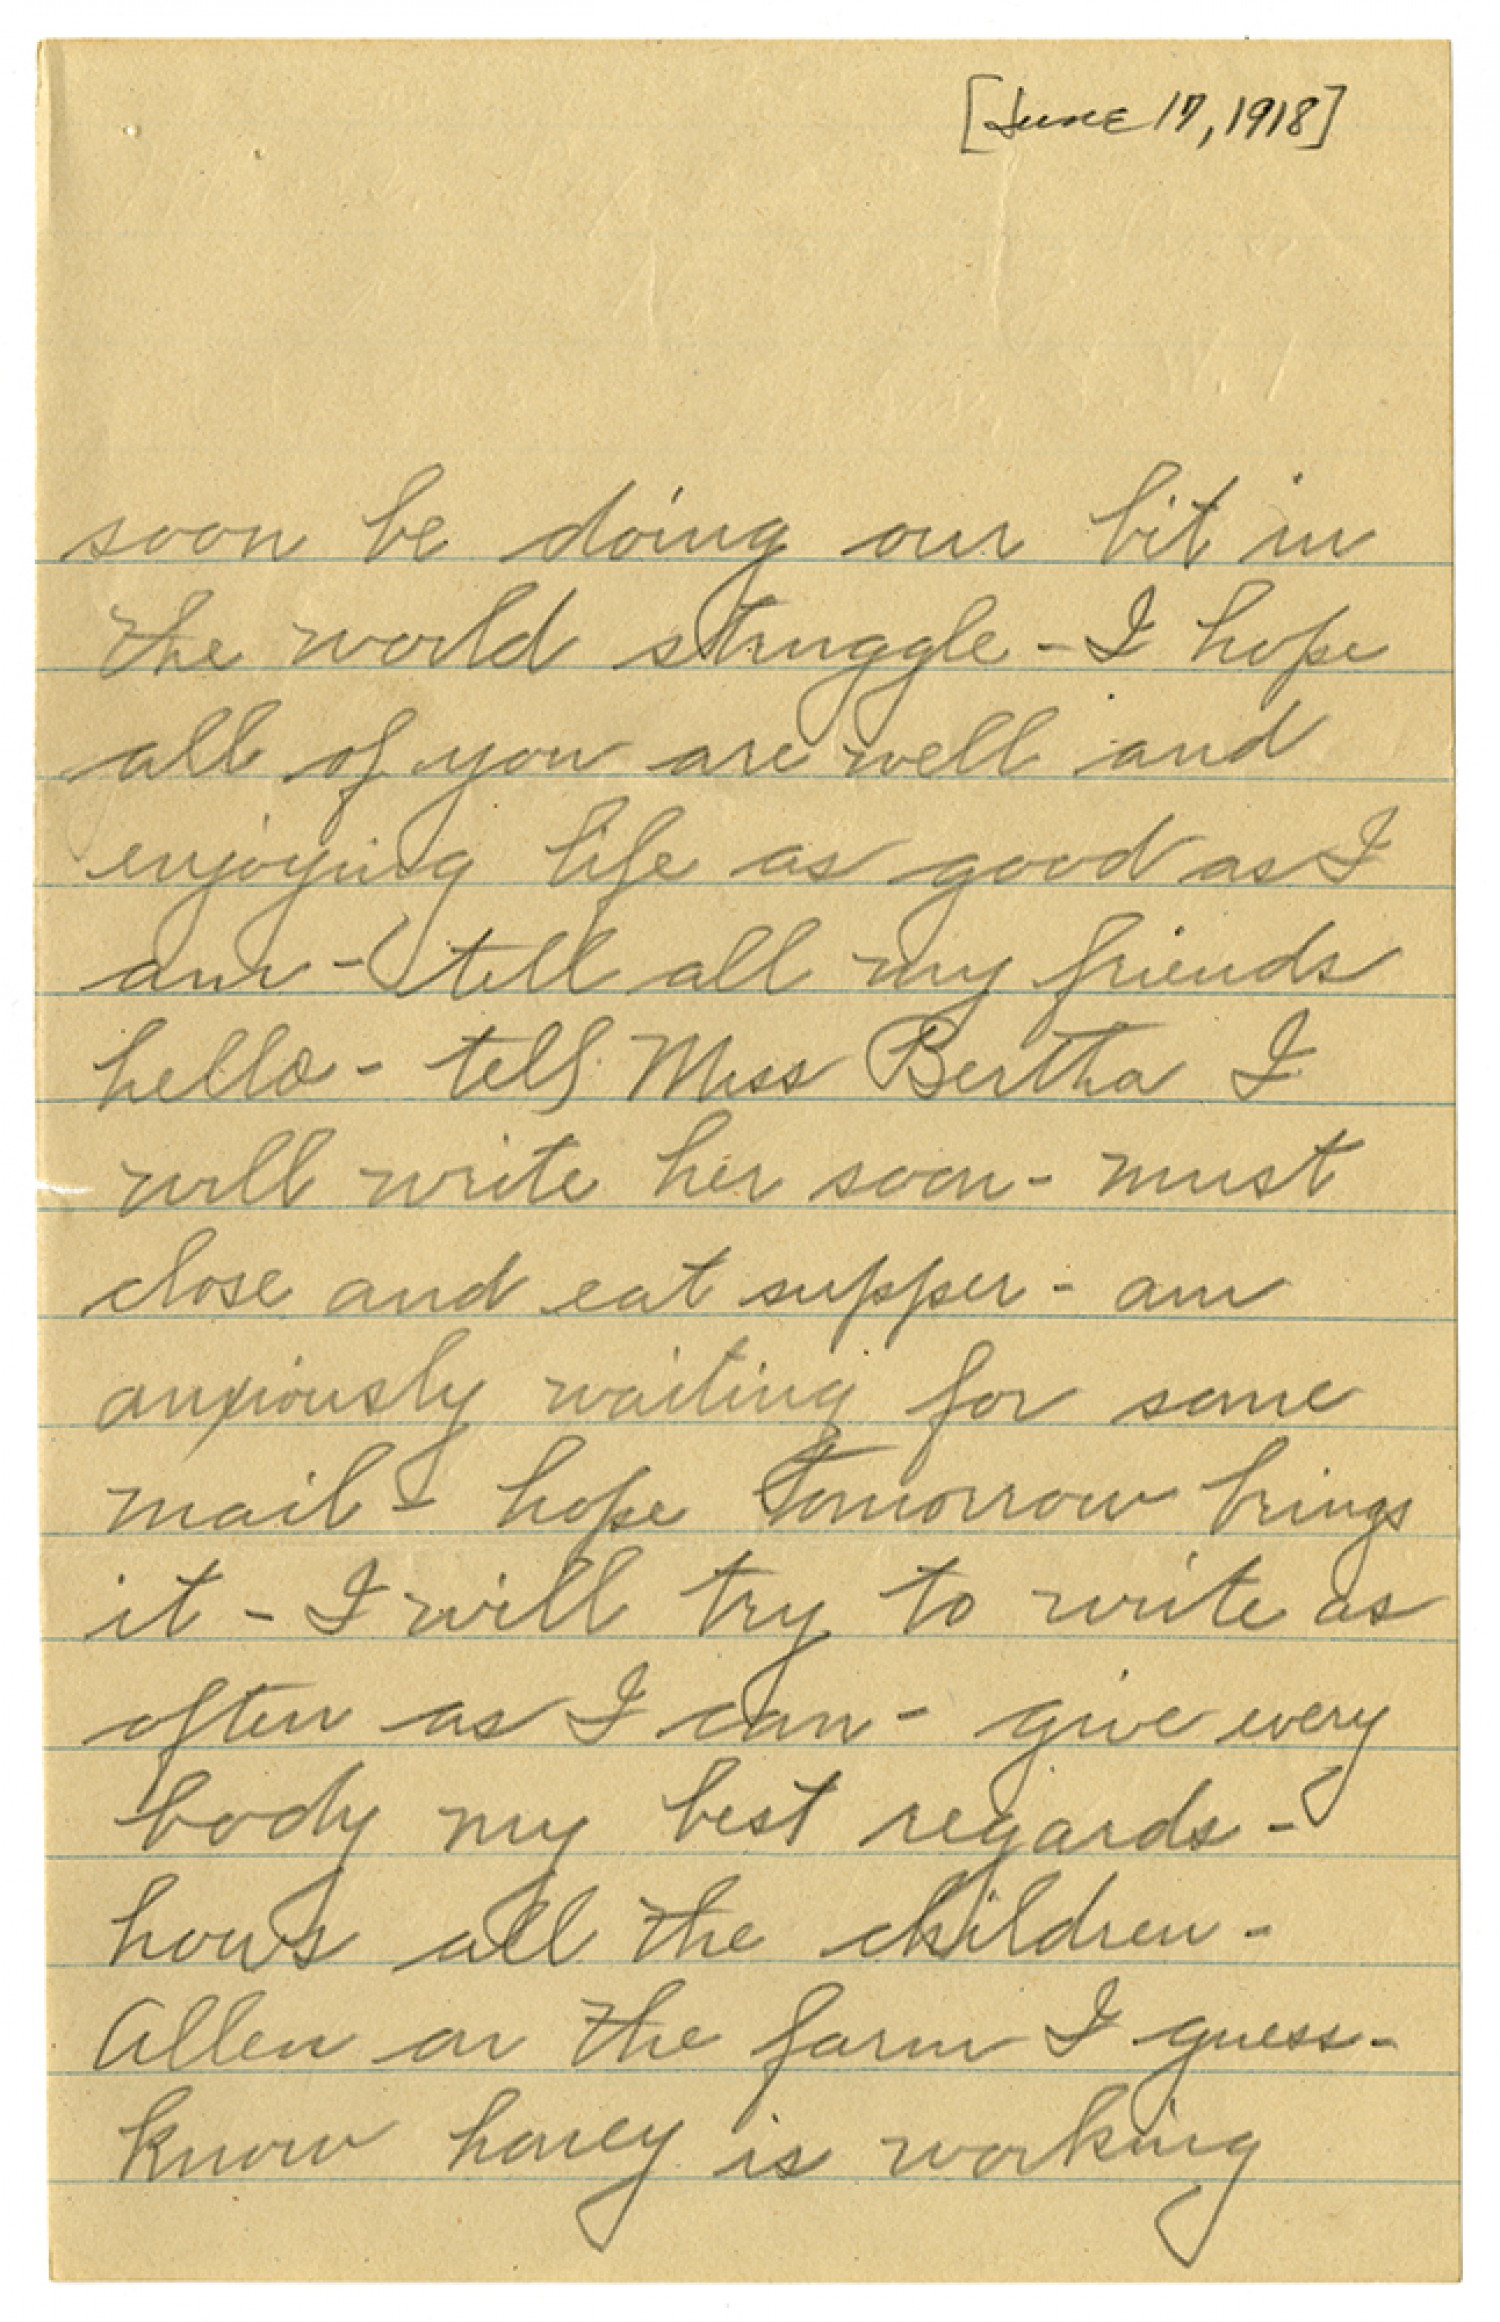 [June 17, 1918]
soon be doing our bit in
the world struggle - I hope
all of you are well and
enjoying life as good as I
am - tell all my friends
hello - tell Miss Bertha I
will write her soon - must
close and eat supper - am
anxiously waiting for some
mail - hope tomorrow brings
it - I will try to write as
often as I can - give every
body my best regards -
hows all the children -
Allen on the farm I guess -
know honey is working